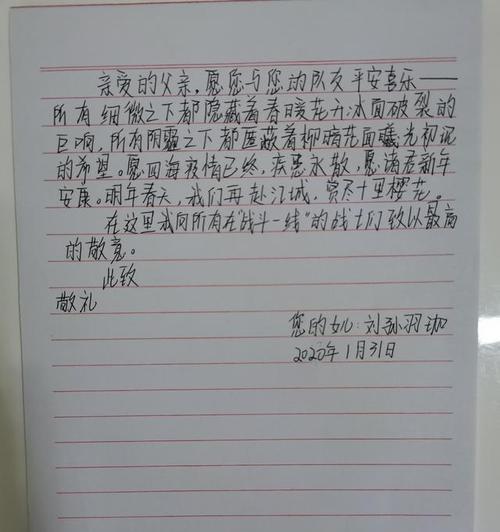 亲爱的父亲，愿您与您的队友平安喜乐——
所有细微之下都隐藏着春暖花开冰面破裂的
巨响，所有阴霾之下都匿蔽着柳暗花面曦光初现
的希望。愿四海疫情已终，疾患永散，愿诸君新年
安康。明年春天，我们再赴江城，赏尽十里樱花。
在这里我向所有在“战斗一线”的战士们致以最高
的敬意。
此致
敬礼
您的女儿：刘孙羽珈
2020年1月31日